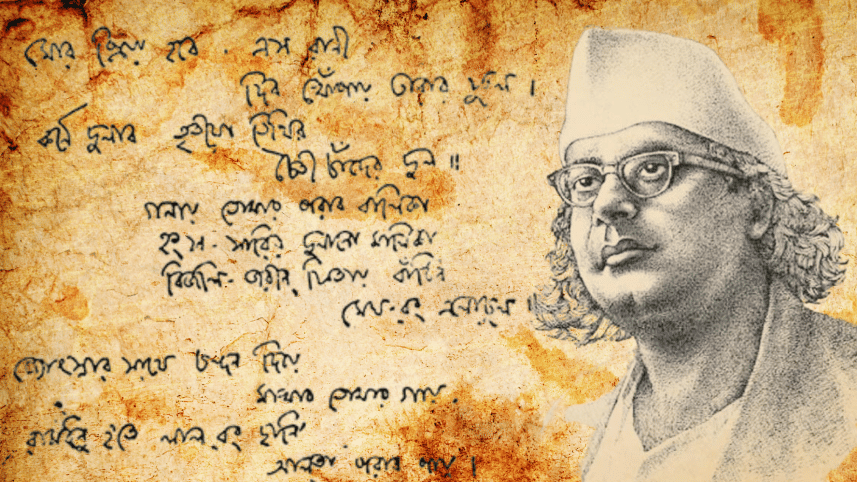 মোর প্রিয়া হবে . এস রানী
দিব খোঁপায় তারার ফুল ।
কর্ণে দুলাব তৃতীয়া তিথির
চৈতী চাঁদের দুল ॥
গলায় তোমার পরাব বালিকা
হংস - সারির দুলানো মালিকা
বিজলি - জরীন্ ফিতায় বাঁধিব
মেঘ-রং এলোচুল ।
জ্যোৎস্নার সাথে চন্দন দিয়ে
মাখাব তোমার গায় .
রামধনু হতে লাল রং ছানি'
আলতা পরাব পায় ।